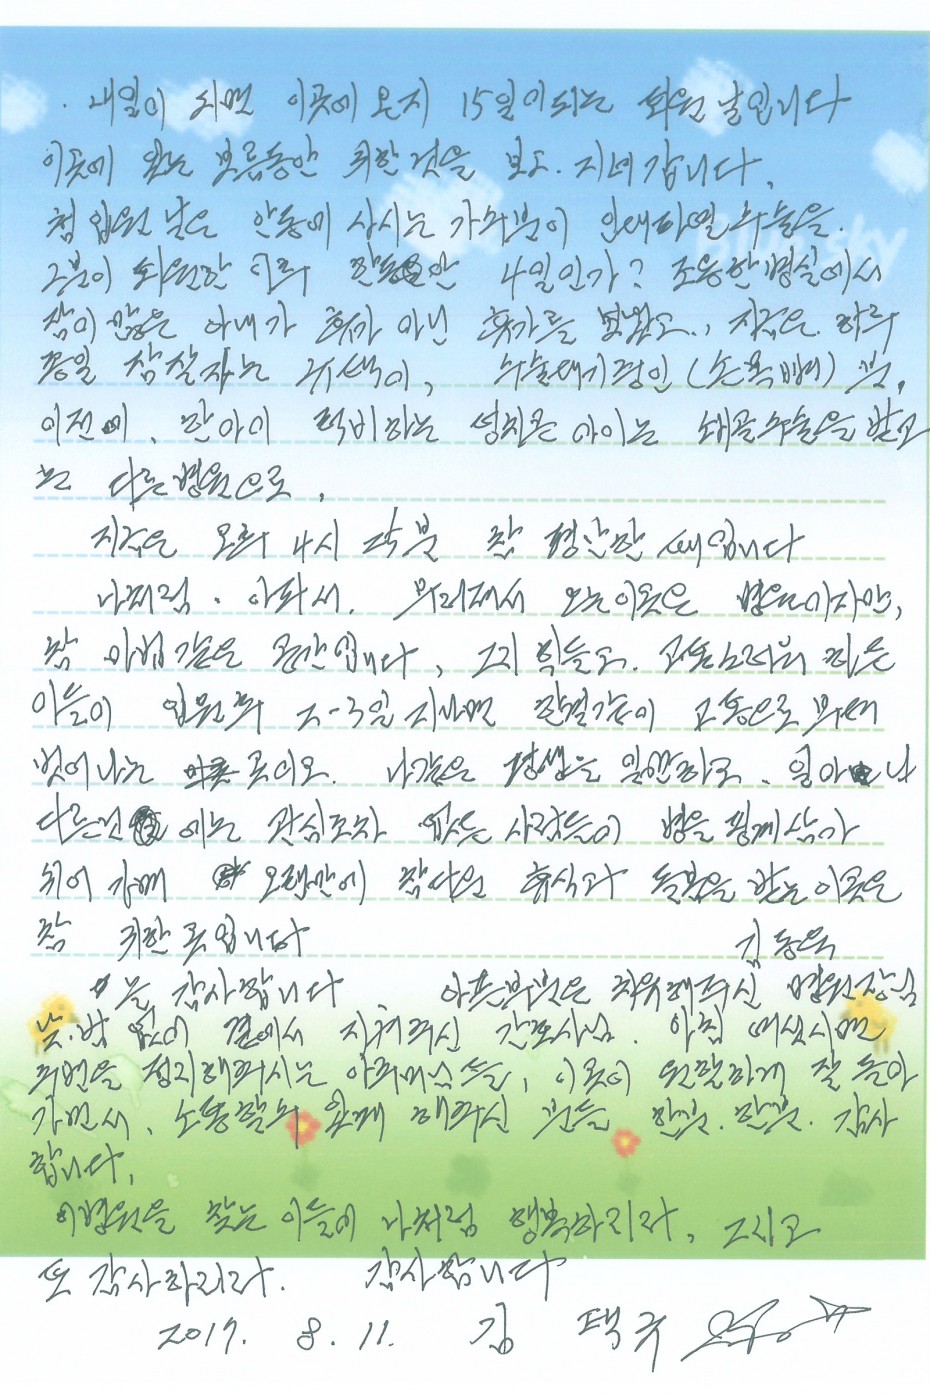 내일이 되면 이곳에 온지 15일이 되는 퇴원 날입니다
이곳에 있는 보름동안 귀한 것을 보고. 지녀갑니다.
첨 입원 날은 안동에 사시는 가족분이 인대파열 수술을.
그분이 퇴원한 이후 한동안 4일인가? 조용한 병실에서
잠이 많은 아내가 휴가 아닌 휴가를 보냈고., 지금은. 하루
종일 잠잘자는 귀색이, 수술대기중인 (손목뼈) 분,
이전에, 만아이 럭비하는 덩치큰 아이는 쇄골수술을 받고
는 다른병원으로,
지금은 오후 4시 참 평안한 때입니다
나처럼. 아파서. 부러져서 오는 이곳은 병원이지만,
참 마법같은 공간입니다, 그리 힘들고. 고통스러워 하는
이들이 입원후 2-3일 지나면 한결같이 고통으로 부터
벗어나는 곳이오. 나같은 평생을 일만하고. 일아니
다른 에는 관심조차 없는 사람들이 병을 핑계삼아
쉬어 가며 오랜만에 참다운 휴식과 돌봄을 받는 이곳은
참 귀한 곳입니다 김동욱
오늘 감사합니다. 아픈부분은 치유해주신 병원장님
낮.밤 없이 곁에서 지켜주신 간호사님. 아침 여섯시면
주변을 정리해주시는 아주머님들, 이곳이 원활하게 잘 돌아
가면서, 노동할수 있게 해주신 분들 한분.한분. 감사
합니다.
이병원을 찾는 이들이 나처럼 행복하리라, 그리고
또 감사하리라. 감사합니다
2017. 8. 11. 김 택규